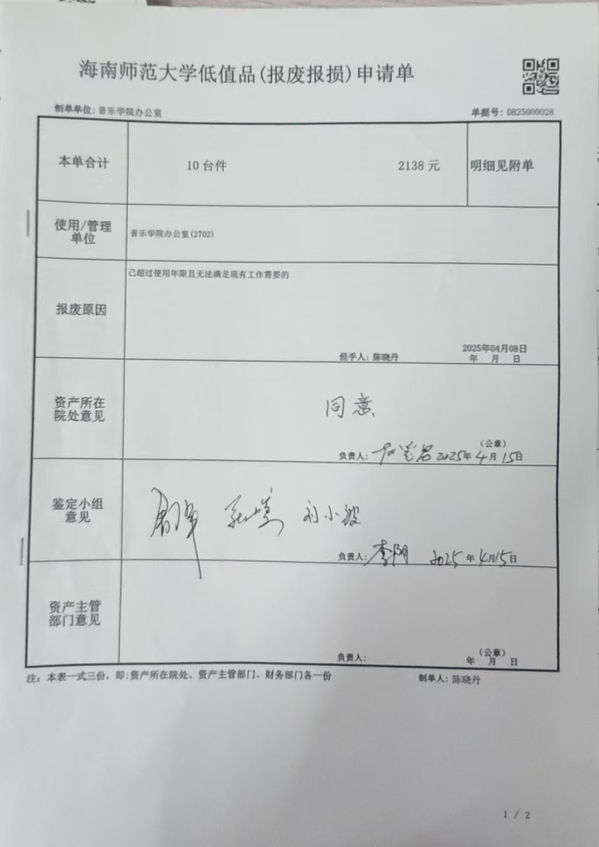 海南师范大学低值品(报废报损)申请单
制单单位: 音乐学院办公室
单据号: DB25000028
本单合计
10 台件
2138 元
明细见附单
使用/管理
单位
音乐学院办公室(2702)
报废原因
已超过使用年限且无法满足现有工作需要的
经手人: 陈晓丹
2025年04月08日
年 月 日
资产所在
院处意见
同意
(公章)
负责人:
2025年4月15日
鉴定小组
意见
刘小波
负责人: 李阴 2025年4月15日
资产主管
部门意见
(公章)
负责人:
年 月 日
注: 本表一式三份, 即:资产所在院处、资产主管部门、财务部门各一份
制单人: 陈晓丹
1 / 2